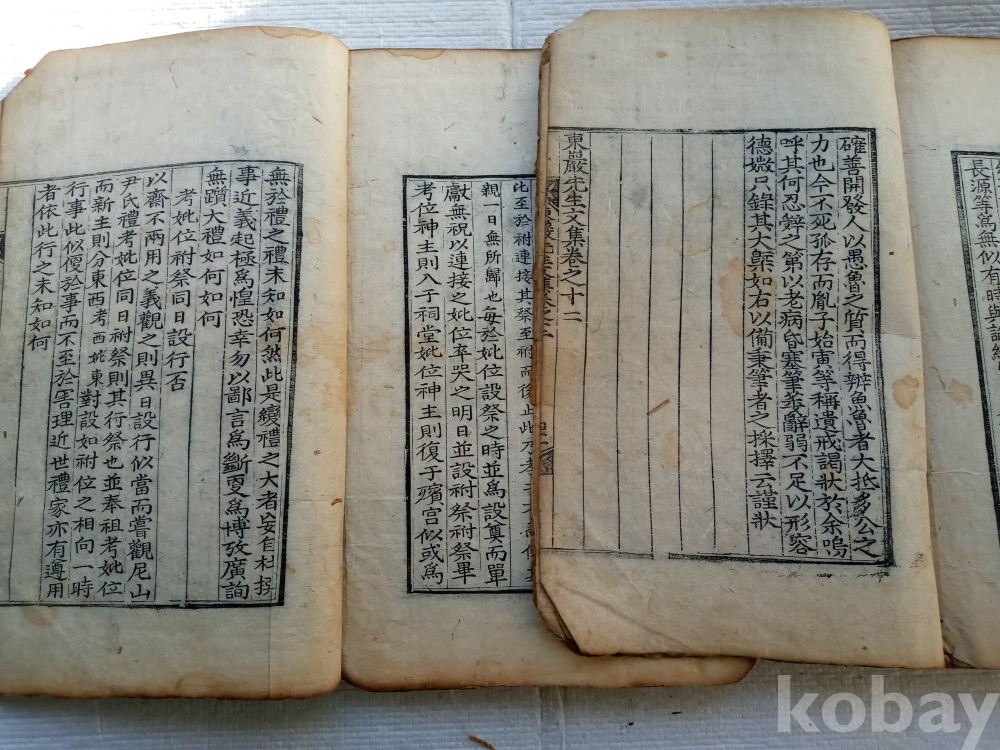 長源等爲無似有時與
確善開發人以愚魯之質而得辨魚魯者大抵多公之
力也今不死孤存而胤子始寅等稱遺戒謁狀於余嗚
呼其何忍辭之第以老病昏塞筆裁辭弱不足以形容
德媺只錄其大槩如右以備秉筆者之採擇云謹狀
東巖先生文集卷之十二
比至於祔連接其祭至祔而後止此乃孝子不爲
親一日無所歸也每於妣位設祭之時並爲設奠而單
獻無祝以連接之妣位卒哭之明日並設祔祭祔祭畢
考位神主則入于祠堂妣位神主則復于殯宮似或爲
無於禮之禮未知如何然此是變禮之大者妄自杜撰
事近義起極爲惶恐幸勿以鄙言爲斷更爲博攷廣詢
無躓大禮如何如何
考妣位祔祭同日設行否
以齋不兩用之義觀之則異日設行似當而嘗觀尼山
尹氏禮考妣位同日祔祭則其行祭也並奉祖考妣位
而新主則分東西考西妣東對設如祔位之相向一時
行事此似便於事而不至於害理近世禮家亦有遵用
者依此行之未知如何
kobay